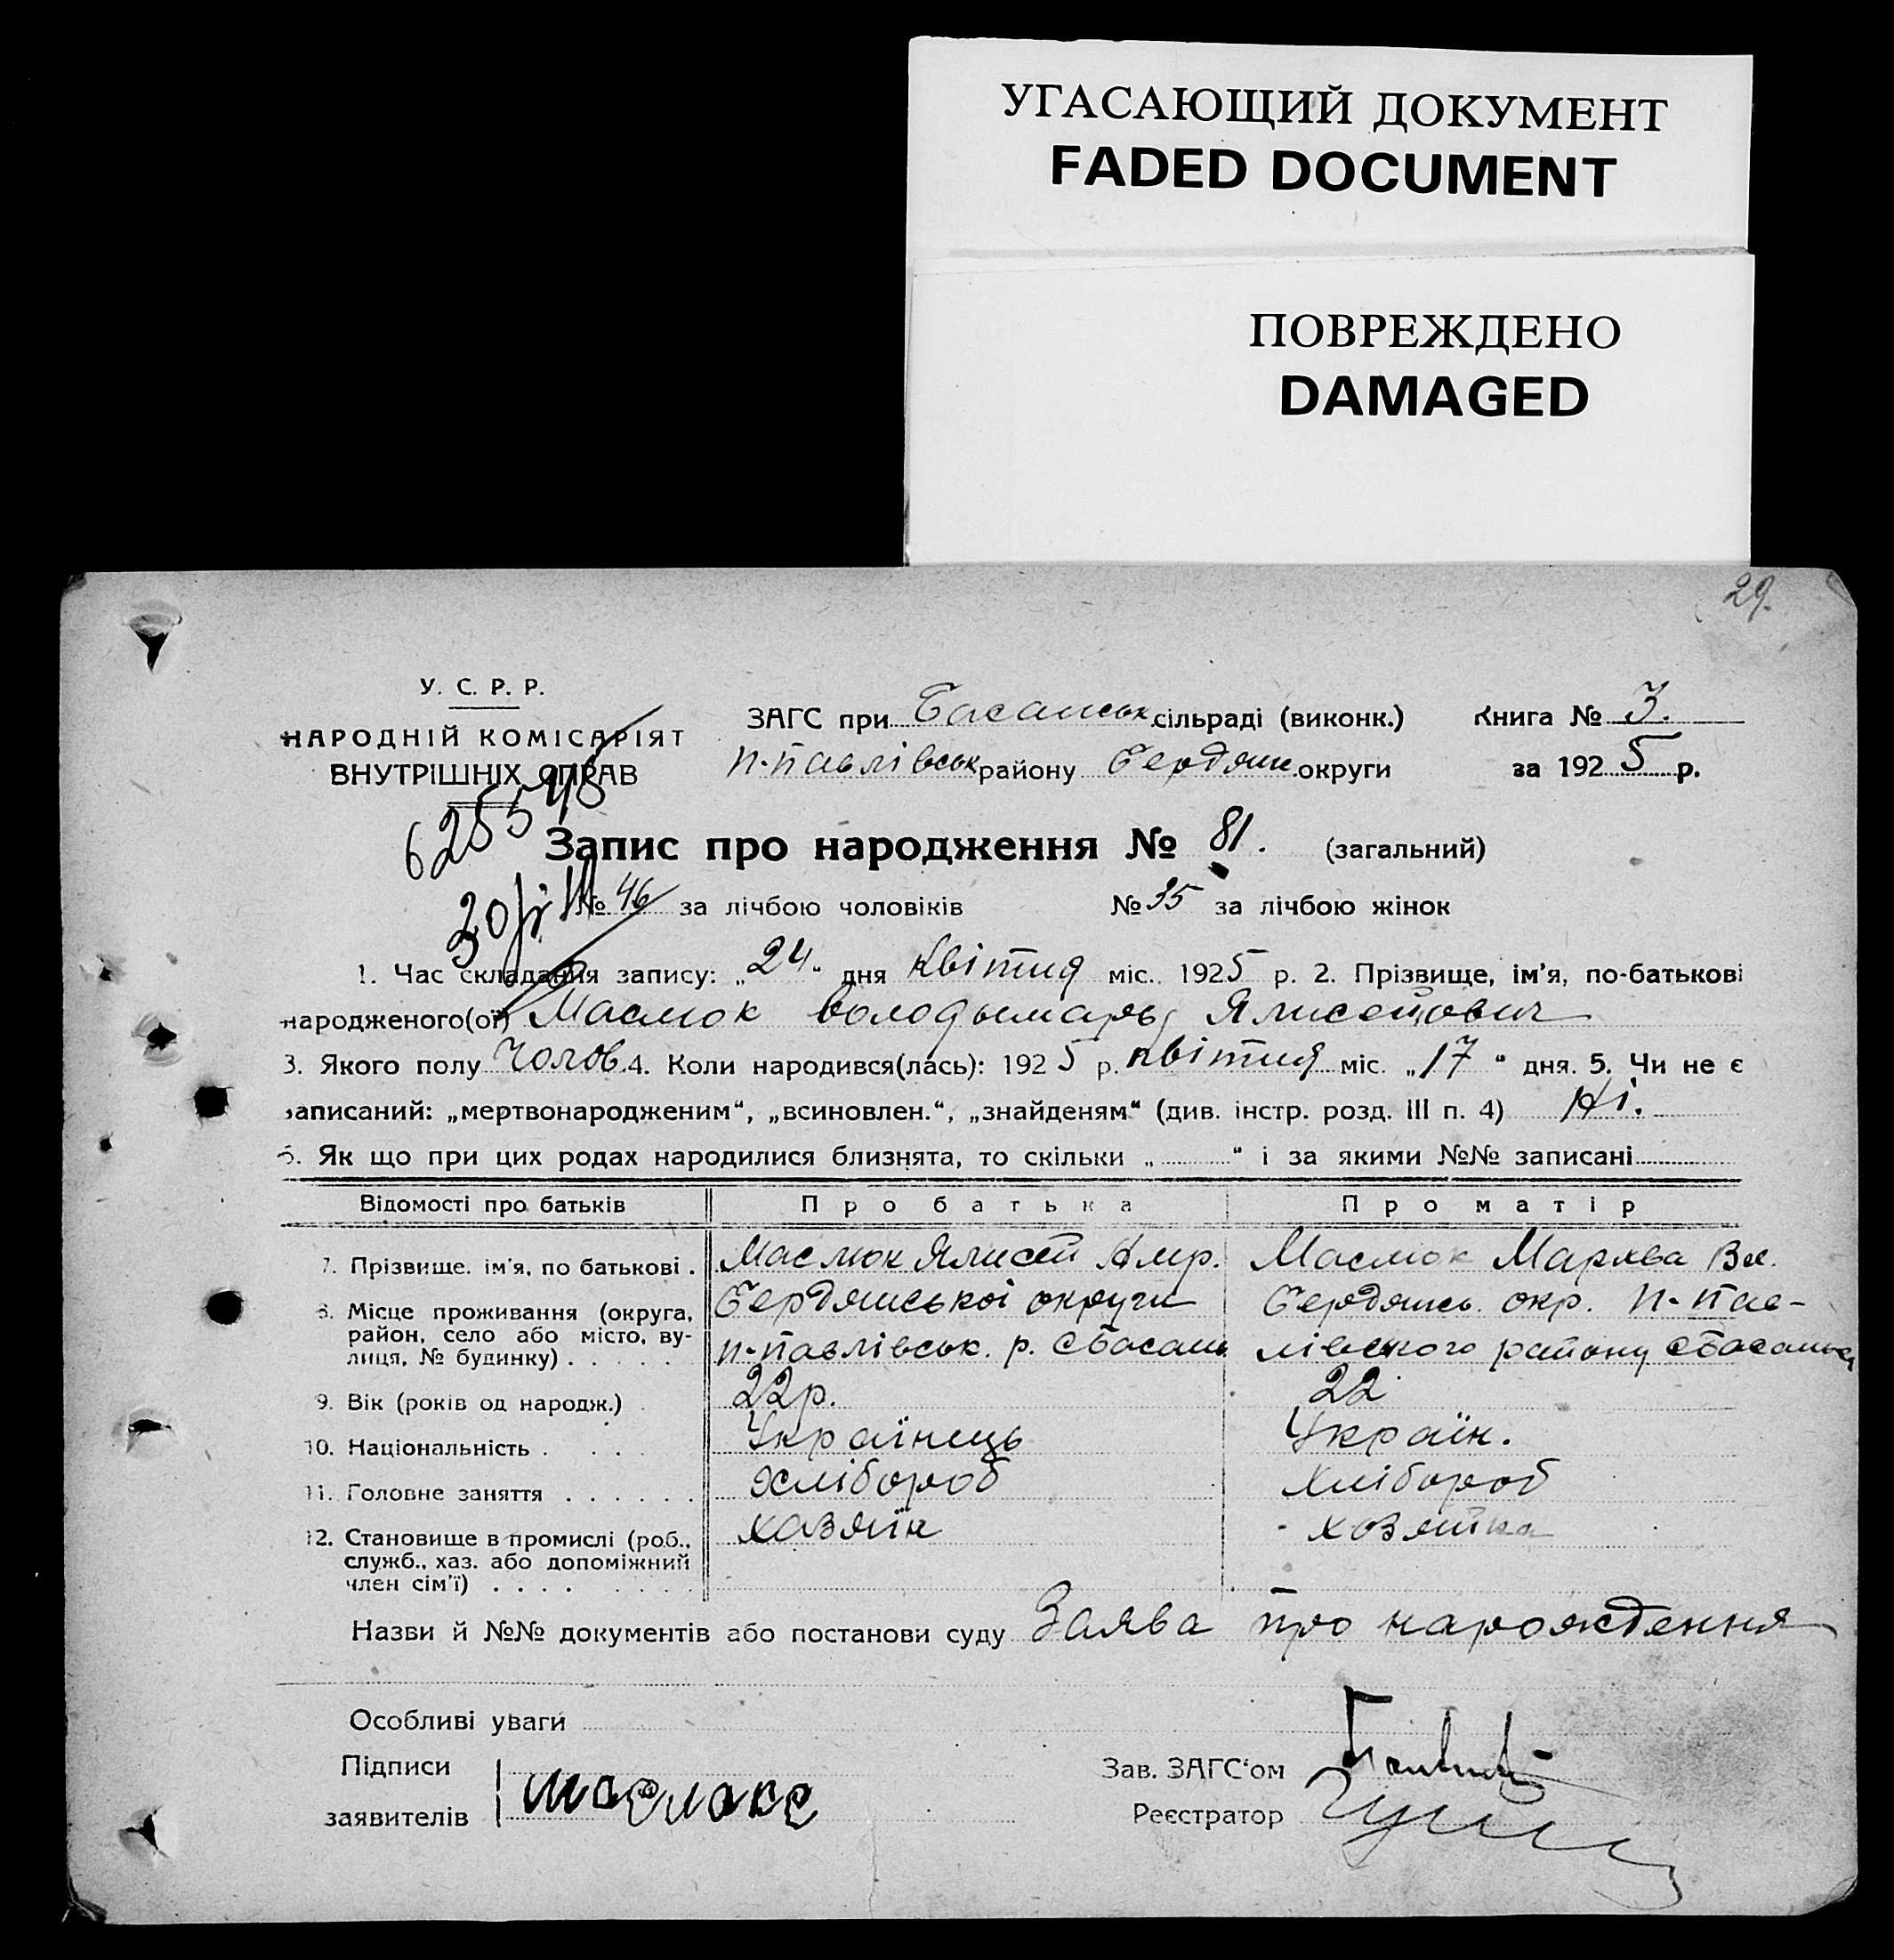 УГАСАЮЩИЙ ДОКУМЕНТ
FADED DOCUMENT
ПОВРЕЖДЕНО
DAMAGED
29.
У. С. Р. Р.
НАРОДНІЙ КОМІСАРІЯТ
ВНУТРІШНІХ СПРАВ
ЗАГС при Басанськ. сільраді (виконк.) Книга № 3.
н-павлівськ району Бердянс. округи за 1925 р.
Запис про народження № 81. (загальний)
№ 46 за лічбою чоловіків № 35 за лічбою жінок
1. Час складання запису: „24“ дня Квітня міс. 1925 р. 2. Прізвище, ім'я, по-батькові
народженого(ої) Маслюк Володымыръ Ялисейович
3. Якого полу Чолов. 4. Коли народився(лась): 1925 р. квітня міс. „17“ дня. 5. Чи не є
записаний: „мертвонародженим“, „всиновлен.“, „знайденям“ (див. інстр. розд. III п. 4) Ні.
6. Як що при цих родах народилися близнята, то скільки „ “ і за якими №№ записані
Відомості про батьків Про батька Про матір
7. Прізвище, ім'я, по батькові . Маслюк Ялисей Маслюк
8. Місце проживання (округа, Бердянської округи Бердянсь. окр. н-пав-
район, село або місто, ву- н-павлівськ. р. с басань лівського району с басань
лиця, № будинку) . . . . .
9. Вік (років од народж.) . 22 р. 22
10. Національність . . . Українець Україн.
11. Головне заняття . . . . . . Хлібороб Хлібороб
12. Становище в промислі (роб., хазяїн хозяйка
служб., хаз. або допоміжний
член сім'ї) . . . . . . . .
Назви й №№ документів або постанови суду Заява про народждення
Особливі уваги
Підписи
Зав. ЗАГС'ом
заявителів
Реєстратор